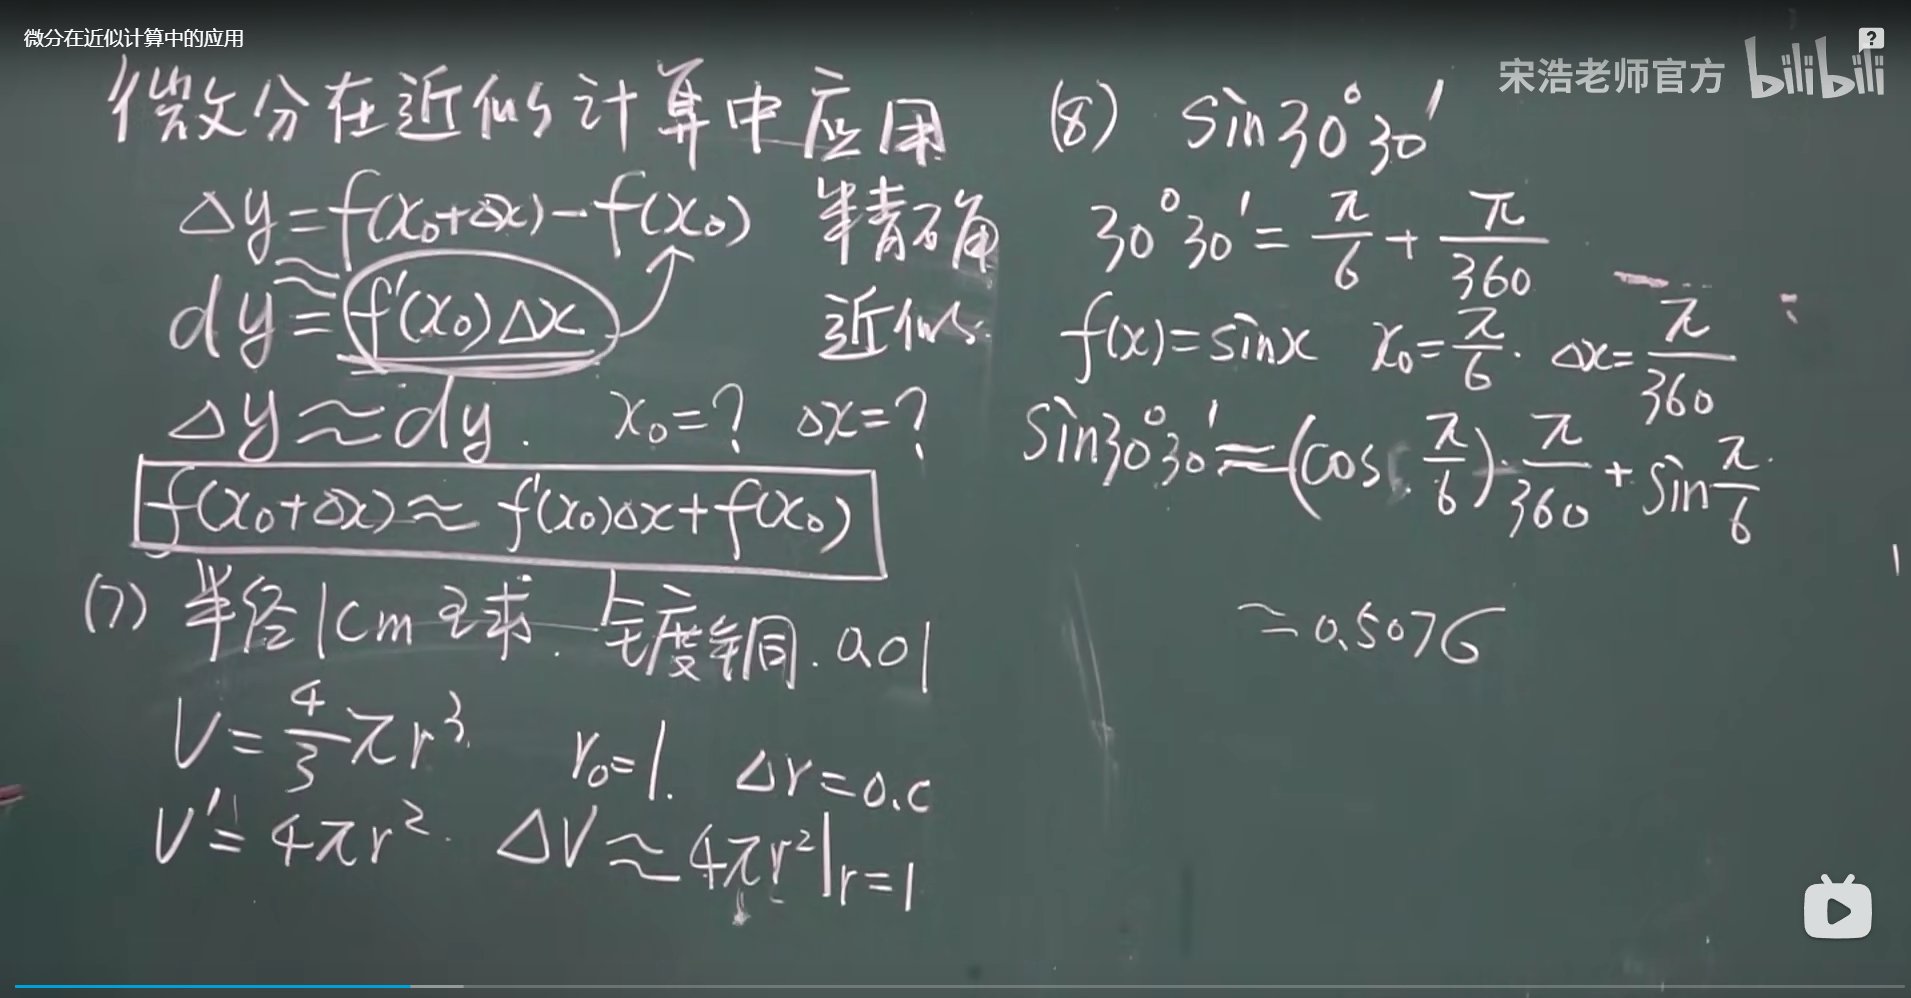 微分在近似计算中的应用
宋浩老师官方 bilibili
微分在近似计算中应用
Δy=f(x₀+Δx)-f(x₀) 精确
≈
dy=f'(x₀)Δx 近似.
Δy≈dy. x₀=? Δx=?
f(x₀+Δx)≈f'(x₀)Δx+f(x₀)
(7) 半径1cm球. 镀铜. 0.01
V=4/3 πr³. r₀=1. Δr=0.0
V'=4πr². ΔV≈4πr²|r=1
(8) sin30°30′
30°30′=π/6+π/360
f(x)=sinx x₀=π/6. Δx=π/360
sin30°30′≈(cos π/6)·π/360+sin π/6
≈0.5076